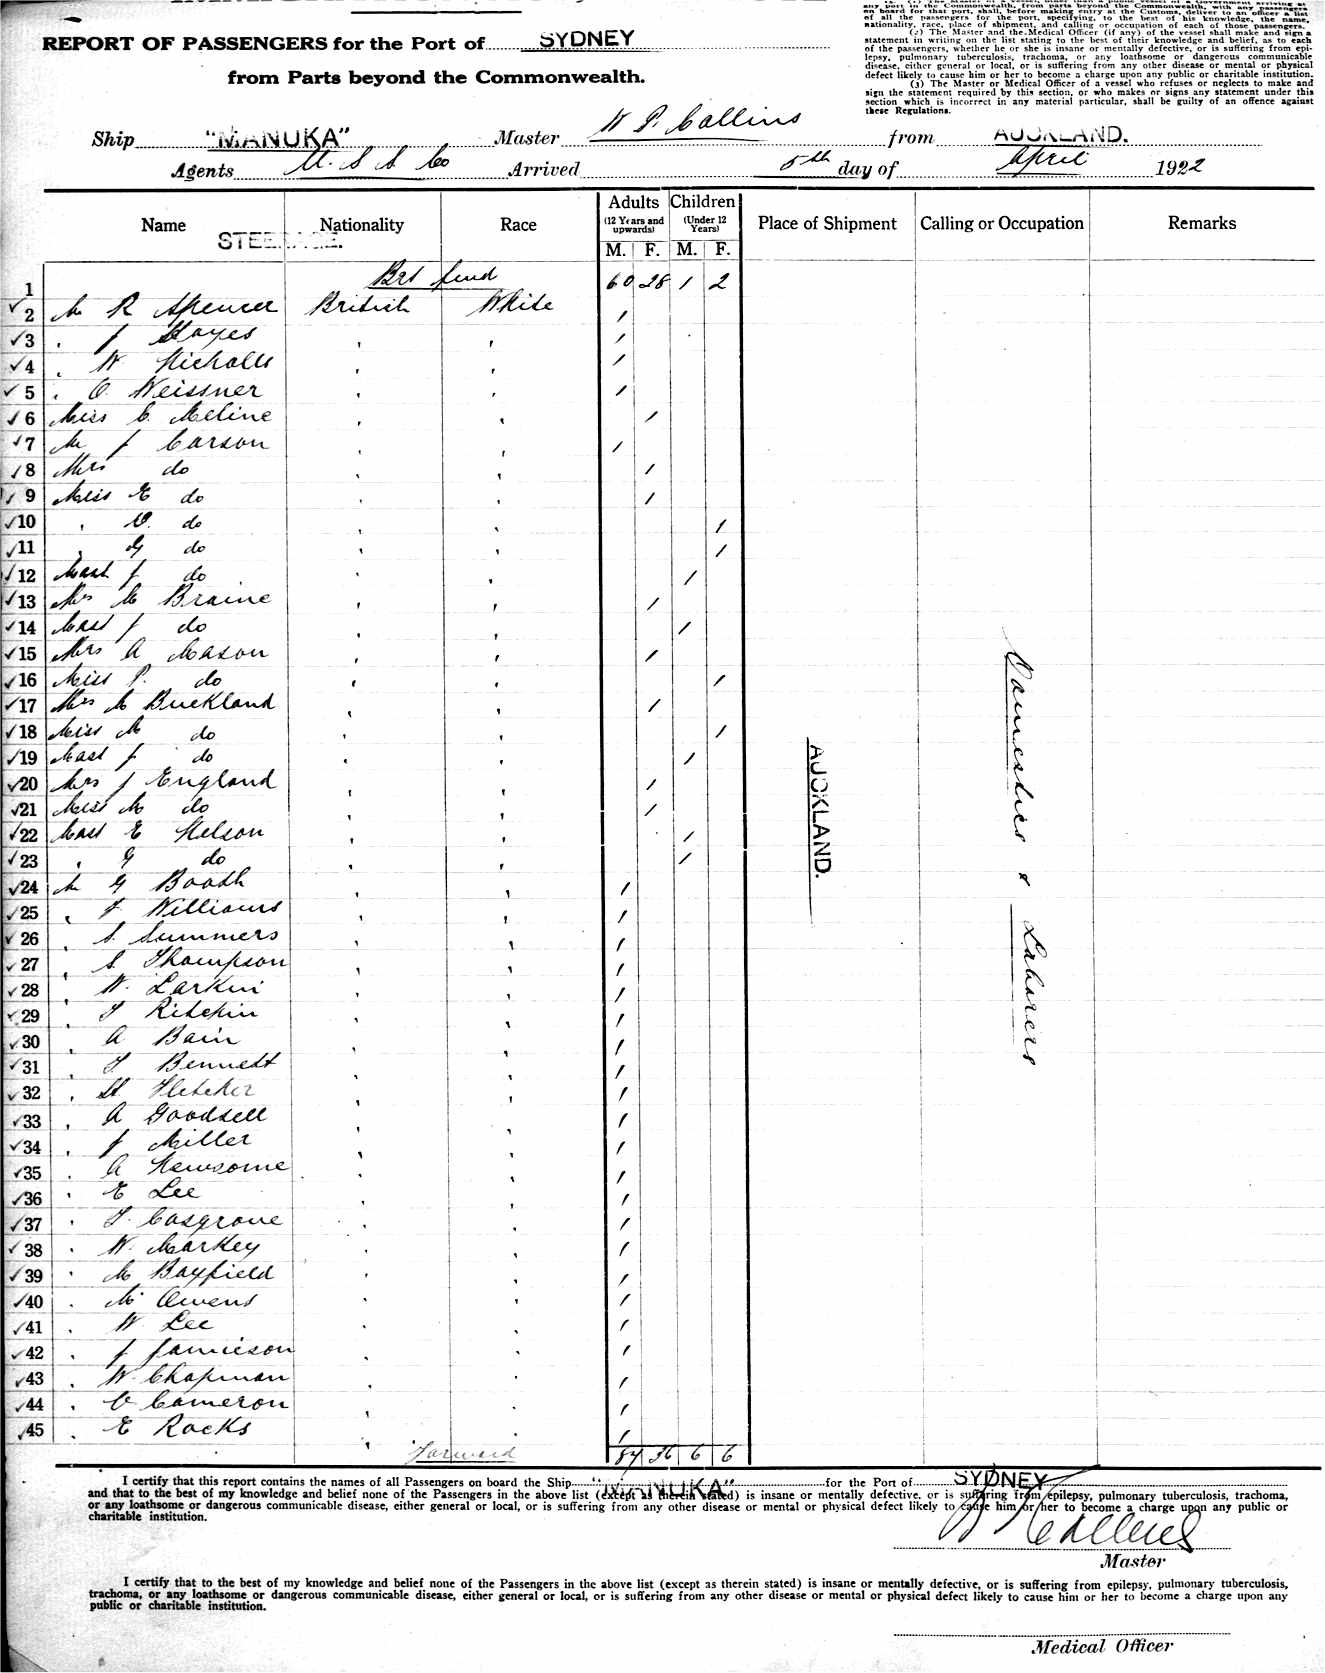 any port in the Commonwealth, from parts beyond the Commonwealth, with any passengers
on board for that port, shall, before making entry at the Customs, deliver to an officer a list
of all the passengers for the port, specifying, to the best of his knowledge, the name,
nationality, race, place of shipment, and calling or occupation of each of those passengers.
(2) The Master and the Medical Officer (if any) of the vessel shall make and sign a
statement in writing on the list stating to the best of their knowledge and belief, as to each
of the passengers, whether he or she is insane or mentally defective, or is suffering from epi-
lepsy, pulmonary tuberculosis, trachoma, or any loathsome or dangerous communicable
disease, either general or local, or is suffering from any other disease or mental or physical
defect likely to cause him or her to become a charge upon any public or charitable institution.
(3) The Master or Medical Officer of a vessel who refuses or neglects to make and
sign the statement required by this section, or who makes or signs any statement under this
section which is incorrect in any material particular, shall be guilty of an offence against
these Regulations.
REPORT OF PASSENGERS for the Port of SYDNEY
from Parts beyond the Commonwealth.
Ship "MANUKA" Master W P. Collins from AUCKLAND.
Agents U. S S Co Arrived 5th day of April 1922
Name Nationality Race Adults (12 Years and upwards) Children (Under 12 Years) Place of Shipment Calling or Occupation Remarks
STEERAGE.
M. F. M. F.
1 Brt fwd 60 28 1 2
2 Mr R Spencer British White /
3 " J Hayes " " /
4 " W Nicholls " " /
5 " O. Weissner " " /
6 Miss C. Meline " " /
7 Mr J Carson " " /
8 Mrs do " " /
9 Miss E do " " /
10 " V. do " " /
11 " G do " " /
12 Mast J do " " /
13 Mrs M Braine " " /
14 Mast J do " " /
15 Mrs A Mason " " /
16 Miss P. do " " /
17 Mrs M Buckland " " /
18 Miss M do " " /
19 Mast J do " " /
20 Mrs J England " " /
21 Miss M do " " /
22 Mast E Nelson " " /
23 " G do " " /
24 Mr G Booth " " /
25 " F Williams " " /
26 " S. Summers " " /
27 " S. Thompson " " /
28 " W. Larkin " " /
29 " T Ritchin " " /
30 " A Bain " " /
31 " T. Bennett " " /
32 " H Fletcher " " /
33 " A Goodsell " " /
34 " J Miller " " /
35 " A Newsome " " /
36 " E Lee " " /
37 " T. Cosgrove " " /
38 " W. Markey " " /
39 " M Bayfield " " /
40 " M Owens " " /
41 " W. Lee " " /
42 " J Jamieson " " /
43 " W. Chapman " " /
44 " C Cameron " " /
45 " E Rocks " " /
AUCKLAND.
Domestics & Laborers
Forward 84 36 6 6
I certify that this report contains the names of all Passengers on board the Ship "MANUKA" for the Port of SYDNEY
and that to the best of my knowledge and belief none of the Passengers in the above list (except as therein stated) is insane or mentally defective, or is suffering from epilepsy, pulmonary tuberculosis, trachoma,
or any loathsome or dangerous communicable disease, either general or local, or is suffering from any other disease or mental or physical defect likely to cause him or her to become a charge upon any public or
charitable institution.
W P Collins
Master
I certify that to the best of my knowledge and belief none of the Passengers in the above list (except as therein stated) is insane or mentally defective, or is suffering from epilepsy, pulmonary tuberculosis,
trachoma, or any loathsome or dangerous communicable disease, either general or local, or is suffering from any other disease or mental or physical defect likely to cause him or her to become a charge upon any
public or charitable institution.
Medical Officer